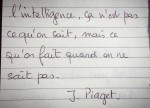 L'intelligence, ça n'est pas
ce qu'on sait, mais ce
qu'on fait quand on ne
sait pas.
J. Piaget.